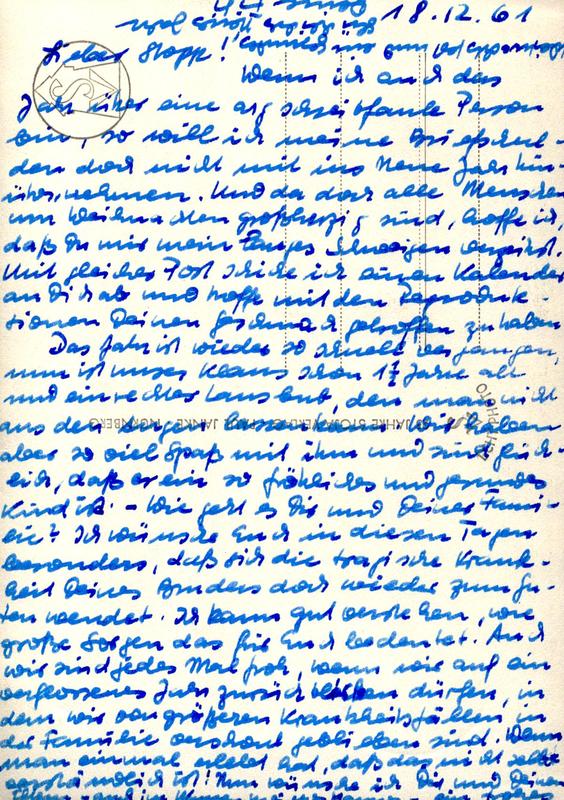 18.12.61
Lieber Stopp!
Wenn ich auch das
Jahr über eine arg schreibfaule Person
bin, so will ich meine Briefschul-
den doch nicht mit ins Neue Jahr hin-
übernehmen. Und da doch alle Menschen
um Weihnachten großherzig sind, hoffe ich,
daß Du mir mein langes Schweigen verzeihst.
Mit gleicher Post schicke ich einen Kalender
an Dich ab und hoffe mit den Reproduk-
tionen Deinen Geschmack getroffen zu haben.
Das Jahr ist wieder so schnell vergangen,
nun ist unser Klaus schon 1½ Jahre alt
und ein rechter Lausbub, den man nicht
aus den Augen lassen kann. Wir haben
aber so viel Spaß mit ihm und sind glück-
lich, daß er ein so fröhliches und gesundes
Kind ist. - Wie geht es Dir und Deiner Fami-
lie? Ich wünsche Euch in diesen Tagen
besonders, daß sich die tragische Krank-
heit Deines Bruders doch wieder zum Gu-
ten wendet. Ich kann gut verstehen, wie
große Sorgen das für Euch bedeutet. Auch
wir sind jedes Mal froh, wenn wir auf ein
verflossenes Jahr zurückblicken dürfen, in
dem wir von größeren Krankheitsfällen in
der Familie verschont geblieben sind. Wenn
man einmal erlebt hat, daß das nicht selbst-
verständlich ist! Nun wünsche ich Dir und Deinen
JAHRE STOJA-VERLAG PAUL JANKE · NÜRNBERG